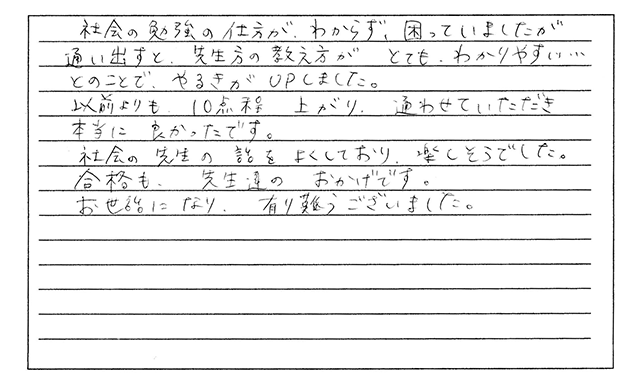 社会の勉強の仕方が、わからず、困っていましたが
通い出すと、先生方の教え方が とても、わかりやすい…
とのことで、やるきがUPしました。
以前よりも、10点程 上がり、通わせていただき
本当に 良かったです。
社会の 先生の 話を よくしており、楽しそうでした。
合格も、 先生達の おかげです。
お世話に なり、 有り難うございました。